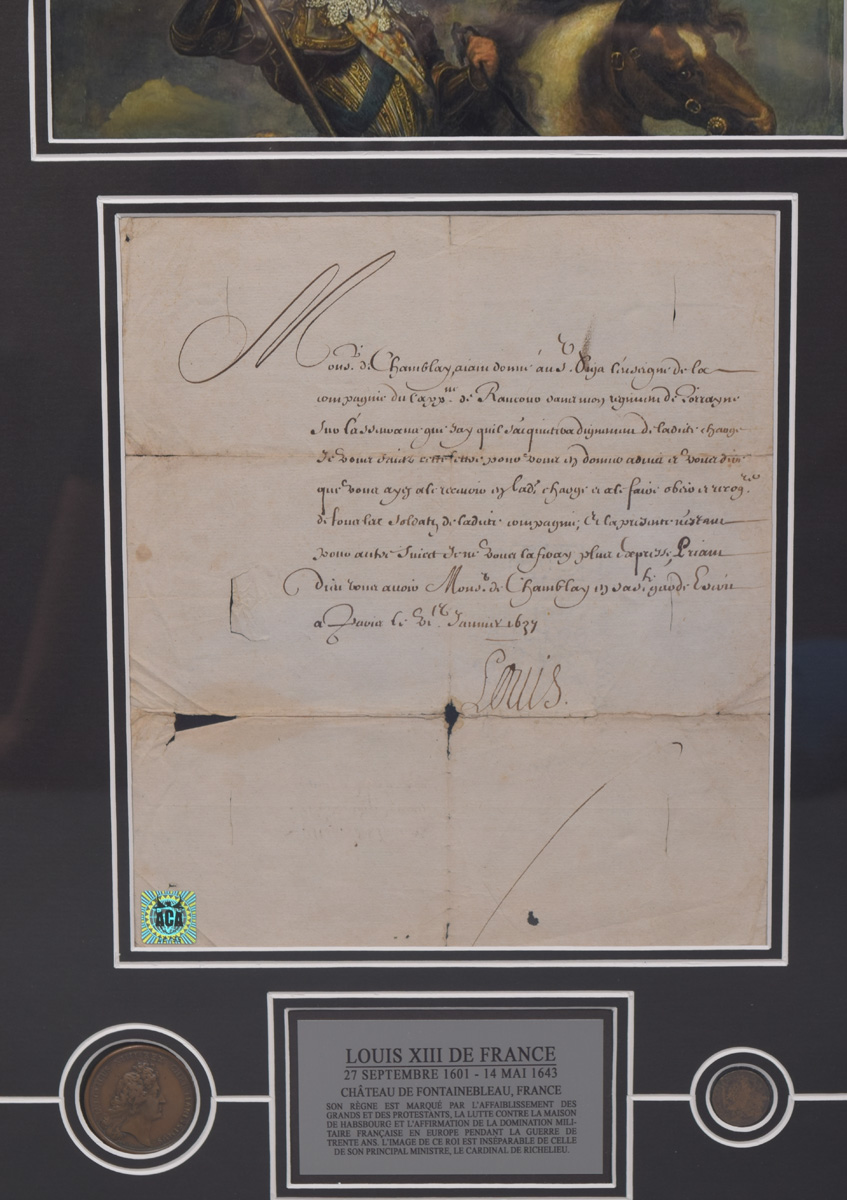 Mons.r de Chamblay, aiant donné au S.r l'enseigne de la
compagnie du Capp.ne de Rancour dans mon regiment de Lorrayne
sur l'asseurance que j'ay qu'il s'aquitera dignement de ladite charge
Je vous faits cette lettre pour vous en donner advis et vous dire
que vous ayez a le recevoir en lad. charge et a le faire obeir et
de tous les soldatz de ladite compagnie; Et la presente n'estant
pour autre suiect Je ne vous la feray plus expresse, Priant
Dieu vous avoir Mons.r de Chamblay en sa s.te garde Escrit
a Paris le Janvier 1637
Louis.
ACA
LOUIS XIII DE FRANCE
27 SEPTEMBRE 1601 - 14 MAI 1643
CHÂTEAU DE FONTAINEBLEAU, FRANCE
SON RÈGNE EST MARQUÉ PAR L'AFFAIBLISSEMENT DES
GRANDS ET DES PROTESTANTS, LA LUTTE CONTRE LA MAISON
DE HABSBOURG ET L'AFFIRMATION DE LA DOMINATION MILI-
TAIRE FRANÇAISE EN EUROPE PENDANT LA GUERRE DE
TRENTE ANS. L'IMAGE DE CE ROI EST INSÉPARABLE DE CELLE
DE SON PRINCIPAL MINISTRE, LE CARDINAL DE RICHELIEU.